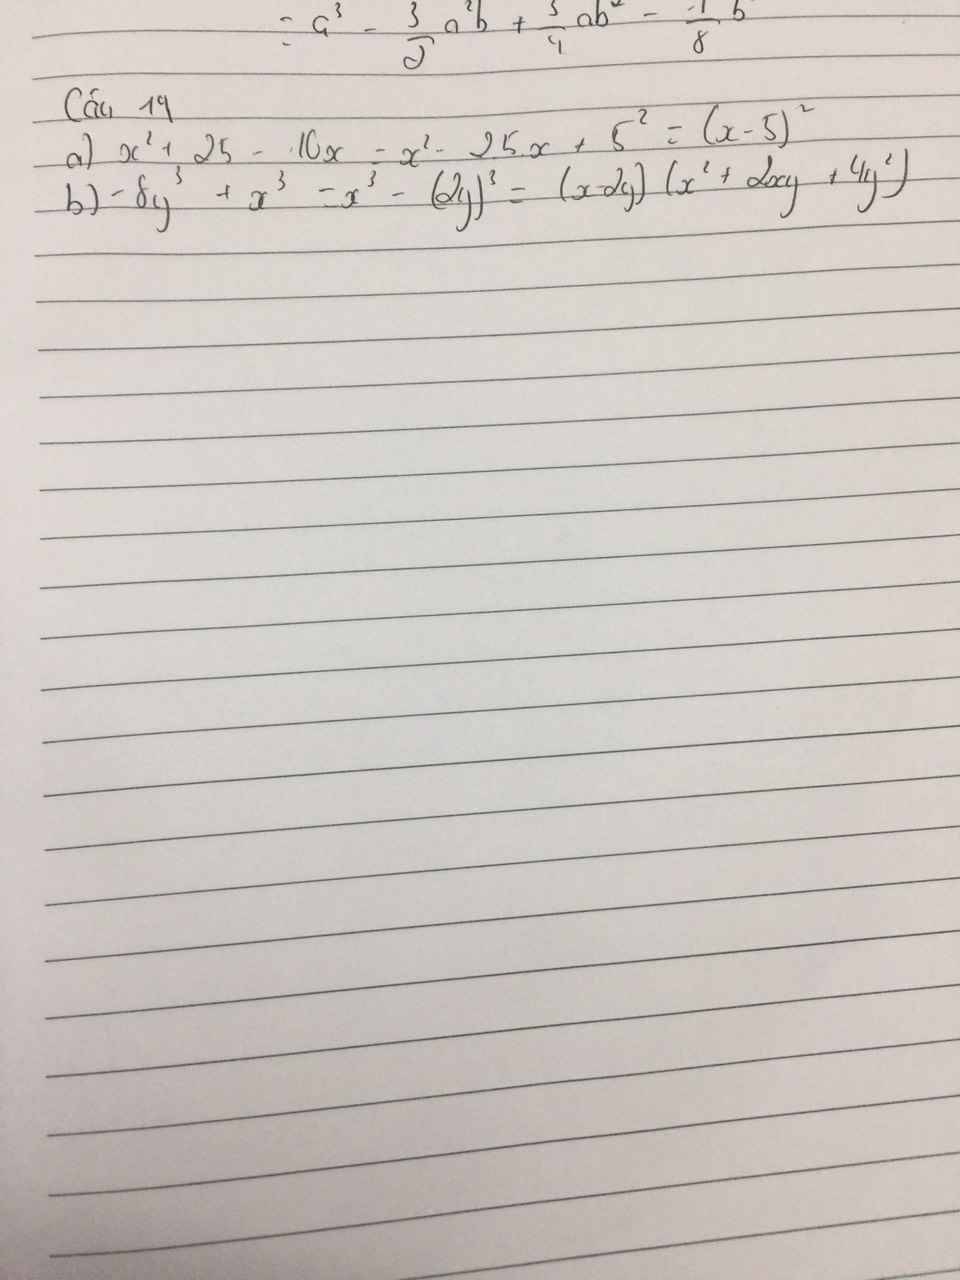 = a³ - 3/2 a²b + 3/4 ab² - 1/8 b
Câu 19
a) x² + 25 - 10x = x² - 2.5.x + 5² = (x-5)²
b) -8y³ + x³ = x³ - (2y)³ = (x-2y) (x² + 2xy + 4y²)